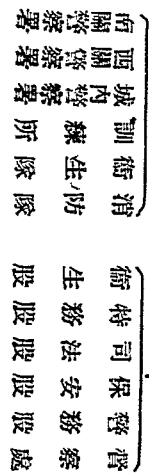 督察處
警務股
保安股
司法股
特務股
衛生股
消防隊
衛生隊
訓練所
城內警察署
西關警察署
南關警察署